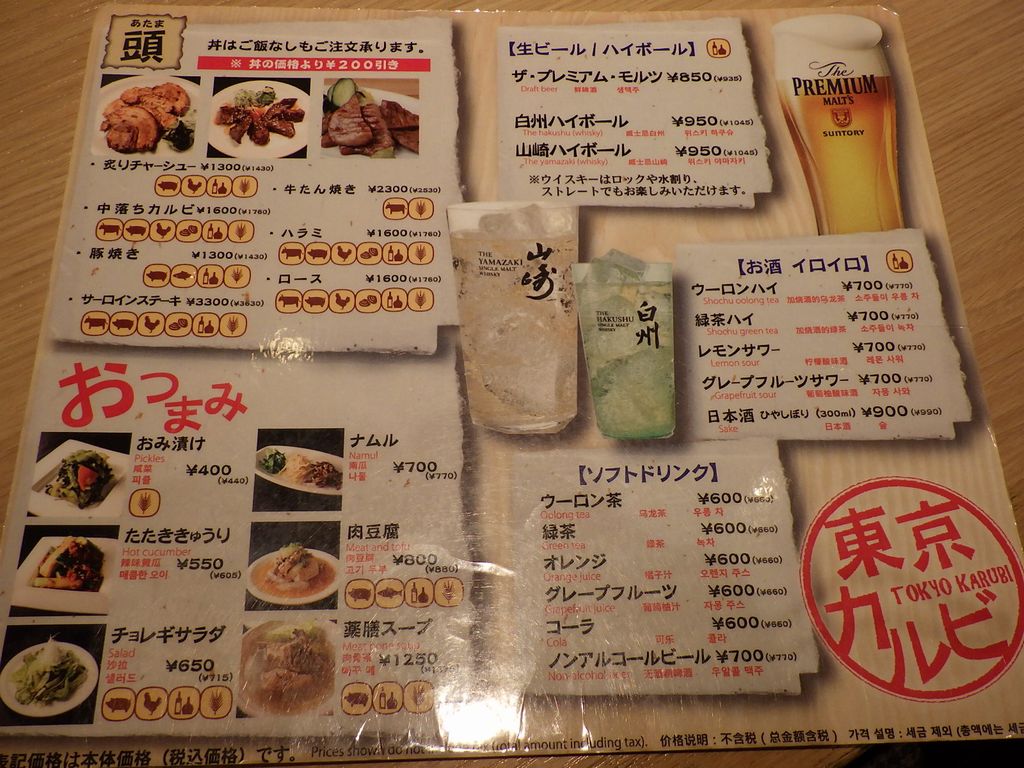 あたま
頭
丼はご飯なしもご注文承ります。
※ 丼の価格より¥200引き
・炙りチャーシュー ¥1300(¥1430)
・牛たん焼き ¥2300(¥2530)
・中落ちカルビ ¥1600(¥1760)
・ハラミ ¥1600(¥1760)
・豚焼き ¥1300(¥1430)
・ロース ¥1600(¥1760)
・サーロインステーキ ¥3300(¥3630)
おつまみ
おみ漬け
Pickles
咸菜
피클
¥400
(¥440)
ナムル
Namul
南瓜
나물
¥700
(¥770)
たたききゅうり
Hot cucumber
辣味黄瓜
매콤한 오이
¥550
(¥605)
肉豆腐
Meat and tofu
肉豆腐
고기 두부
¥800
(¥880)
チョレギサラダ
Salad
沙拉
샐러드
¥650
(¥715)
薬膳スープ
Meat bone soup
¥1250
【生ビール / ハイボール】
ザ・プレミアム・モルツ ¥850(¥935)
Draft beer 鲜啤酒 생맥주
白州ハイボール ¥950(¥1045)
The hakushu (whisky) 威士忌白州 위스키 하쿠슈
山崎ハイボール ¥950(¥1045)
The yamazaki (whisky) 威士忌山崎 위스키 야마자키
※ウイスキーはロックや水割り、
ストレートでもお楽しみいただけます。
The
PREMIUM
MALT'S
SUNTORY
THE
YAMAZAKI
SINGLE MALT
WHISKY
山崎
THE
HAKUSHU
SINGLE MALT
WHISKY
白州
【お酒 イロイロ】
ウーロンハイ ¥700(¥770)
Shochu oolong tea 加烧酒的乌龙茶 소주들이 우롱 차
緑茶ハイ ¥700(¥770)
Shochu green tea 加烧酒的绿茶 소주들이 녹차
レモンサワー ¥700(¥770)
Lemon sour 柠檬酸味酒 레몬 사워
グレープフルーツサワー ¥700(¥770)
Grapefruit sour 葡萄柚酸味酒 자몽 사와
日本酒 ひやしぼり (300ml) ¥900(¥990)
Sake 日本酒 술
【ソフトドリンク】
ウーロン茶 ¥600(¥660)
Oolong tea 乌龙茶 우롱 차
緑茶 ¥600(¥660)
Green tea 绿茶 녹차
オレンジ ¥600(¥660)
Orange juice 橘子汁 오렌지 주스
グレープフルーツ ¥600(¥660)
Grapefruit juice 葡萄柚汁 자몽 주스
コーラ ¥600(¥660)
Cola 可乐 콜라
ノンアルコールビール ¥700(¥770)
Non-alcohol beer 无酒精啤酒 무알콜 맥주
東京
TOKYO KARUBI
カルビ
表記価格は本体価格(税込価格)です。 Prices shown do not (total amount including tax). 价格说明:不含税(总金额含税) 가격 설명 : 세금 제외 (총액에는 세금